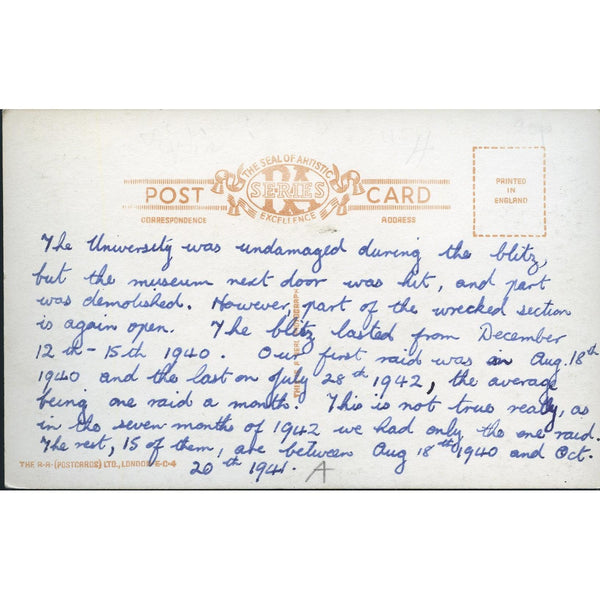 THE SEAL OF ARTISTIC
POST RA SERIES CARD
EXCELLENCE
CORRESPONDENCE ADDRESS
PRINTED
IN
ENGLAND
The University was undamaged during the blitz,
but the museum next door was hit, and part
was demolished. However, part of the wrecked section
is again open. The blitz lasted from December
12th - 15th 1940. Our first raid was on Aug. 18th
1940 and the last on July 28th 1942, the average
being one raid a month. This is not true really, as
in the seven months of 1942 we had only the one raid.
The rest, 15 of them, are between Aug 18th 1940 and Oct.
20th 1941.
A
THE R.A. (POSTCARDS) LTD., LONDON E.C.4